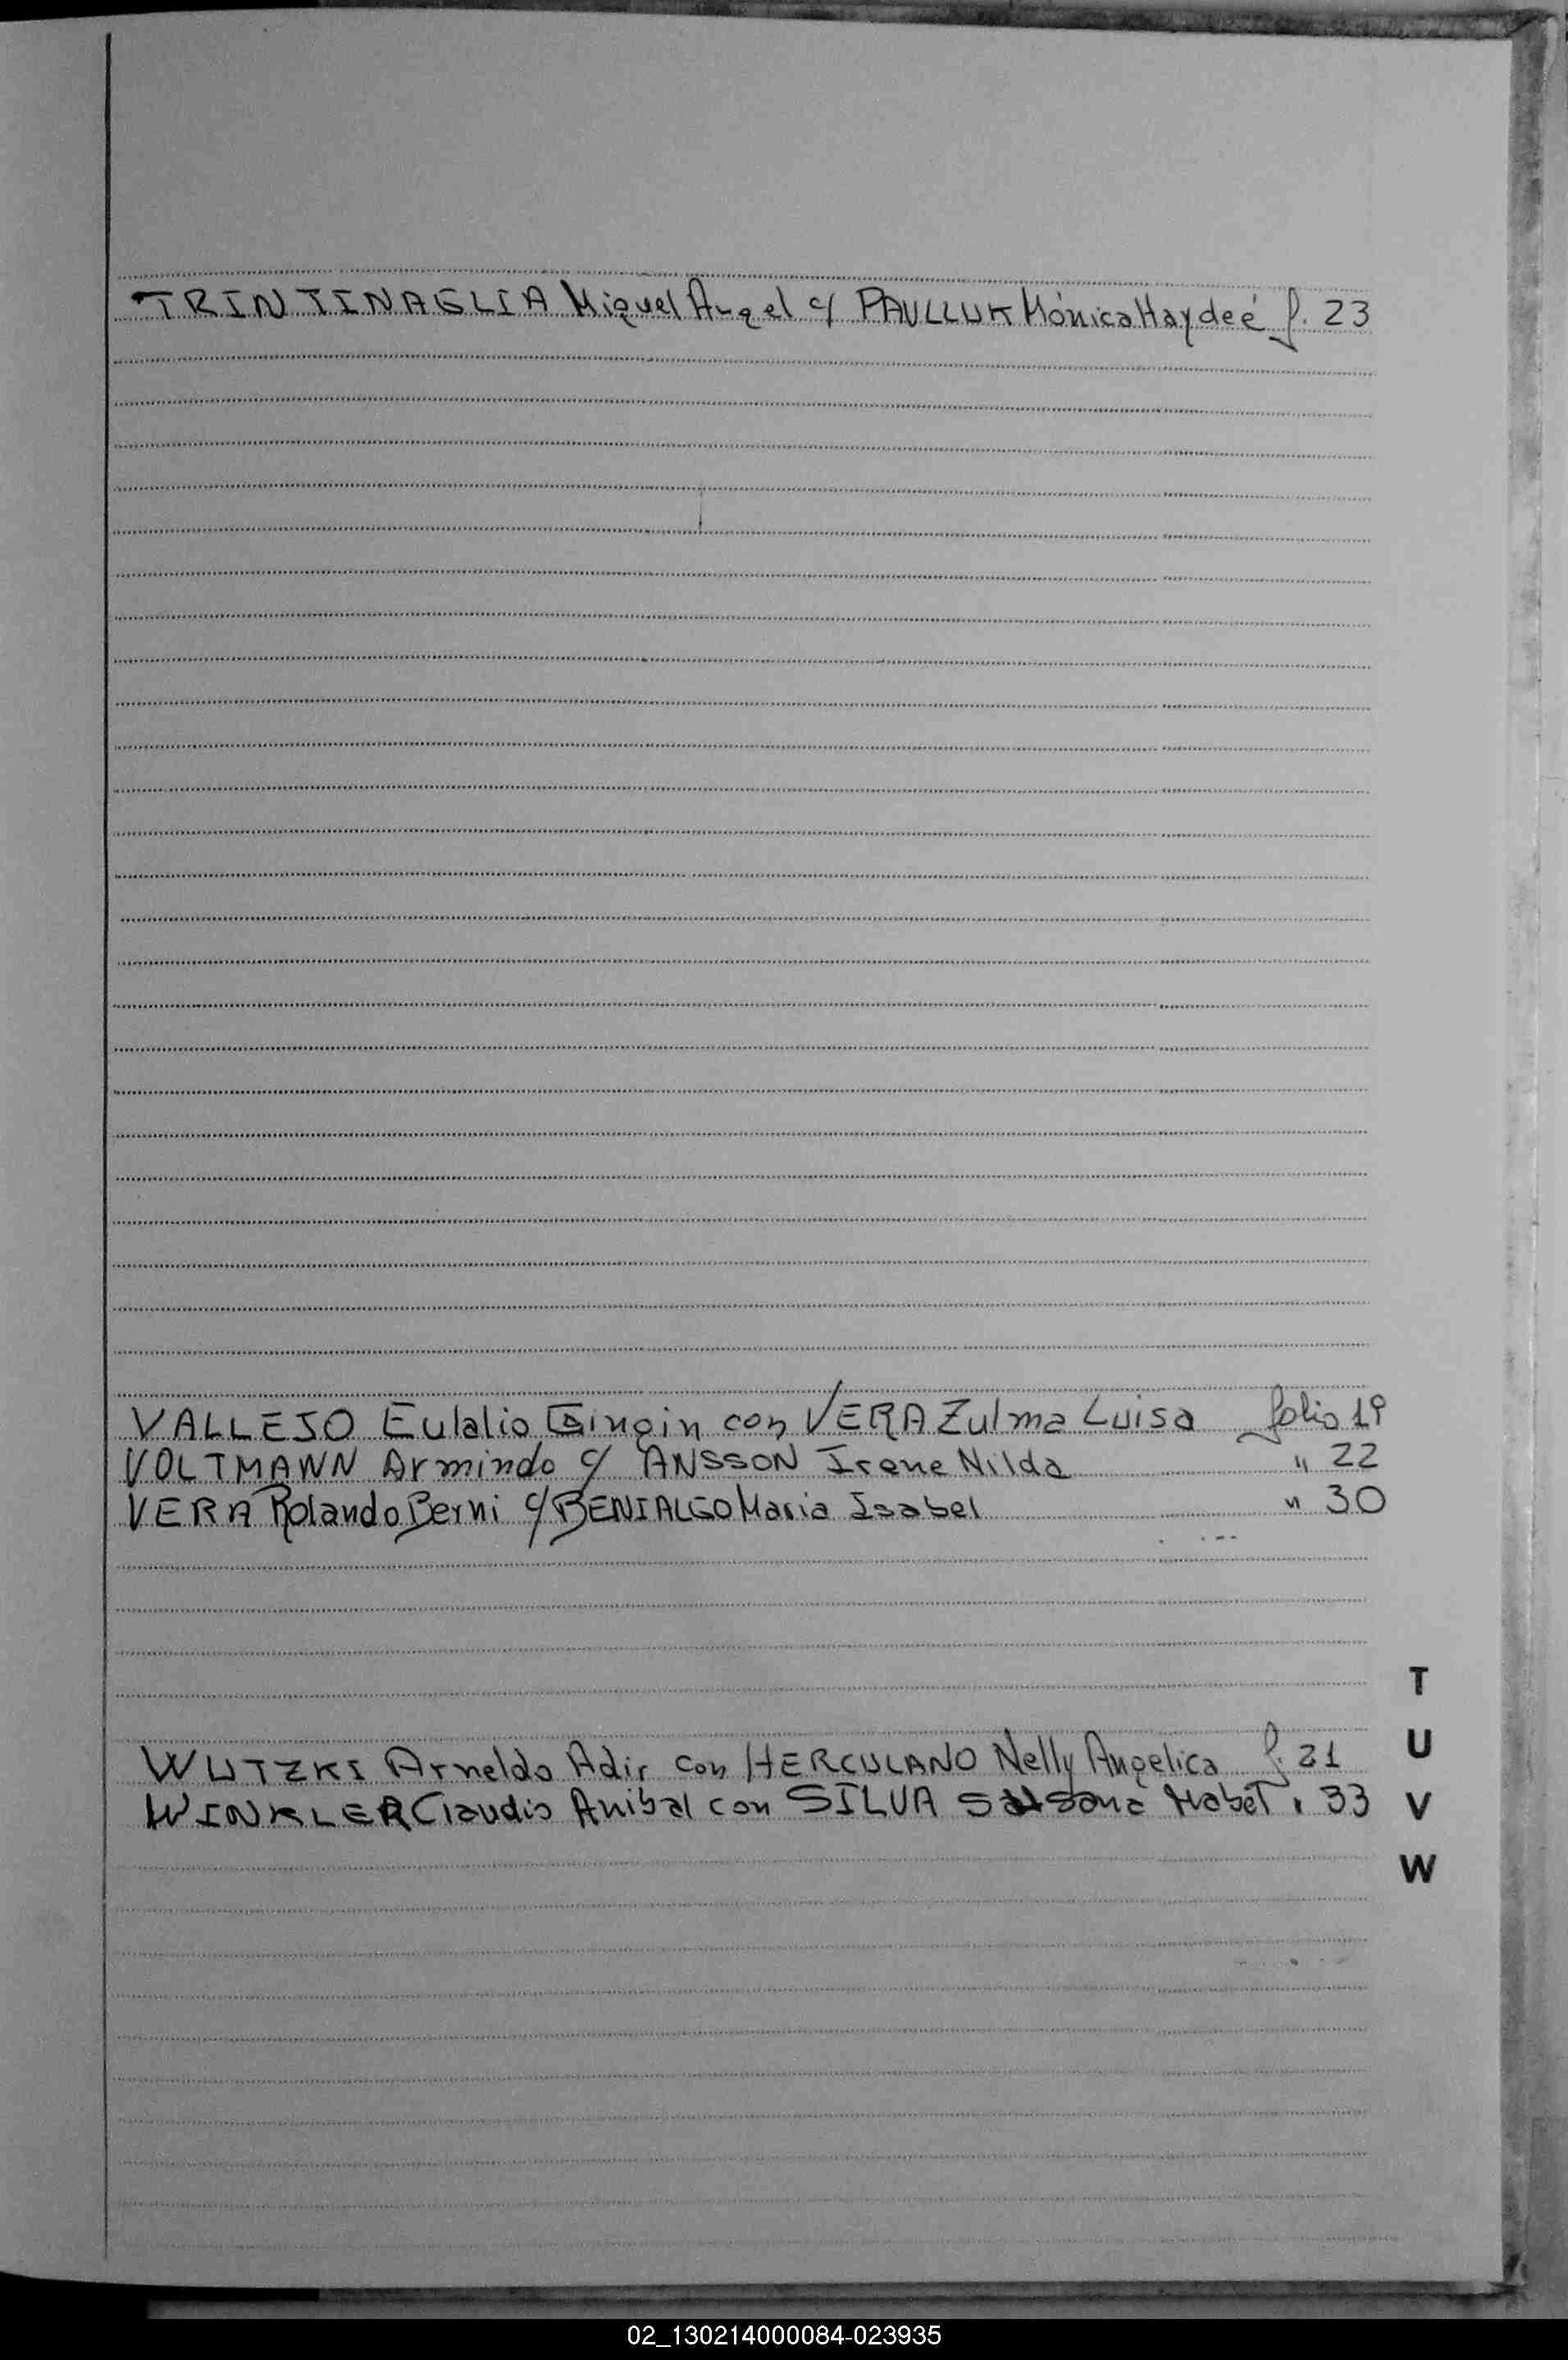 TRINTINAGLIA Miguel Angel c/ PAULLUK Mónica Haydeé f. 23
VALLEJO Eulalio con VERA Zulma Luisa folio 19
VOLTMANN Armindo c/ ANSSON Irene Nilda " 22
VERA Rolando Berni c/ BENIALGO Maria Isabel " 30
WUTZKI Arneldo Adir con HERCULANO Nelly Angelica f. 21
WINKLER Claudio Anibal con SILVA Mabel " 33
T
U
V
W
02_130214000084-023935